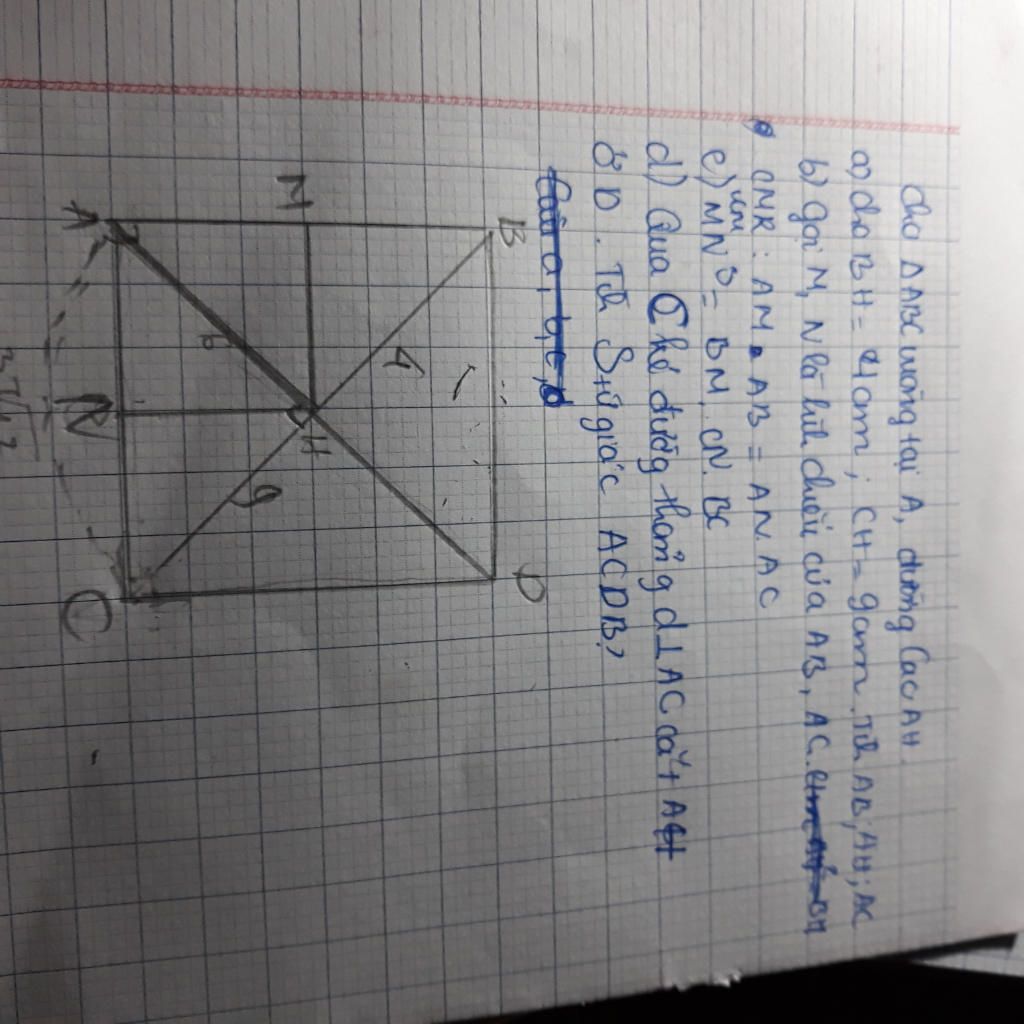 Cho ΔABC vuông tại A, đường cao AH
a) cho BH = 4cm ; CH = 9cm . Tính AB ; AH ; AC
b) gọi M, N là hình chiếu của AB, AC.
CMR : AM . AB = AN . AC
c) cm MN³ = BM . CN . BC
d) Qua C kẻ đường thẳng d ⊥ AC cắt AH
ở D . Tính S tứ giác ACDB?
Câu a, b, c, d
M
A
B
6
4
H
N
9
C
D